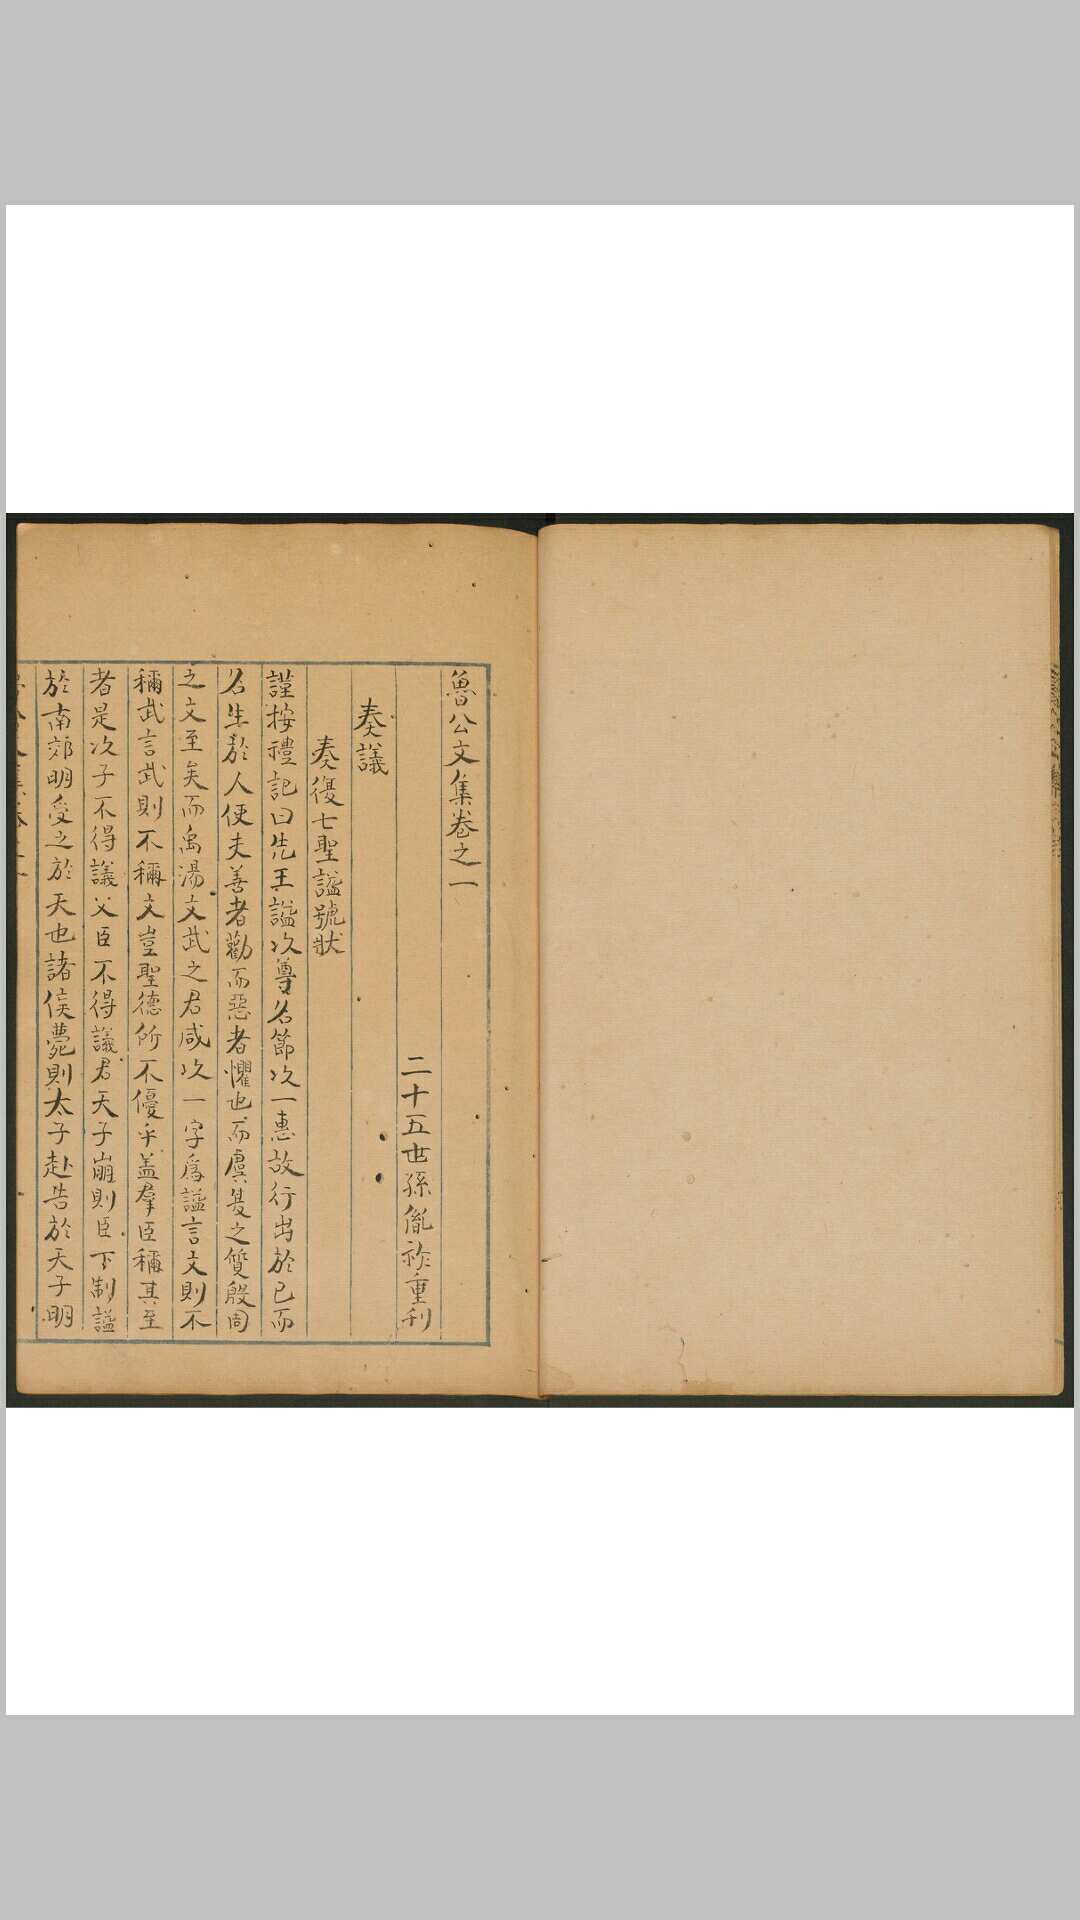 魯公文集卷之一
二十五世孫胤祚重刊
奏議
奏復七聖諡號狀
謹按禮記曰先王諡以尊名節以一惠故行出於己而
名生於人使夫善者勸而惡者懼也而虞夏之質殷周
之文至矣而禹湯文武之君咸以一字爲諡言文則不
稱武言武則不稱文豈聖德所不優乎盖羣臣稱其至
者是以子不得議父臣不得議君天子崩則臣下制諡
於南郊明受之於天也諸侯薨則太子赴告於天子明